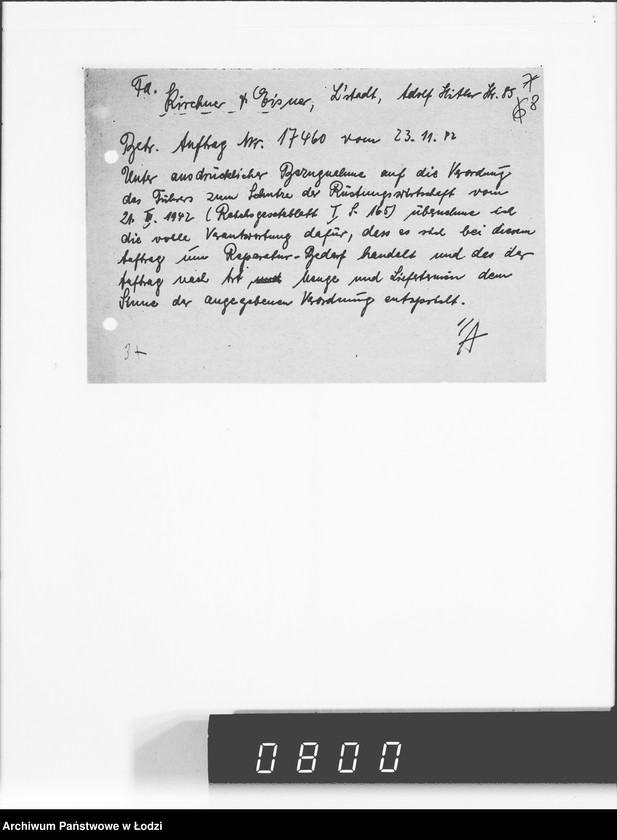 Fa.
Kirchner & Eisner, L'stadt, Adolf Hitler Str. 85
7
8
Betr. Auftrag Nr. 17460 vom 23.11.42
Unter ausdrücklicher Bezugnahme auf die Verordnung
des Führers zum Schutze der Rüstungswirtschaft vom
21. III. 1942 (Reichsgesetzblatt I S. 165) übernehme ich
die volle Verantwortung dafür, dass es sich bei diesem
Auftrag um Reparatur-Bedarf handelt und das der
Auftrag nach Art Menge und Liefertermin dem
Sinne der angegebenen Verordnung entspricht.
0800
Archiwum Państwowe w Łodzi